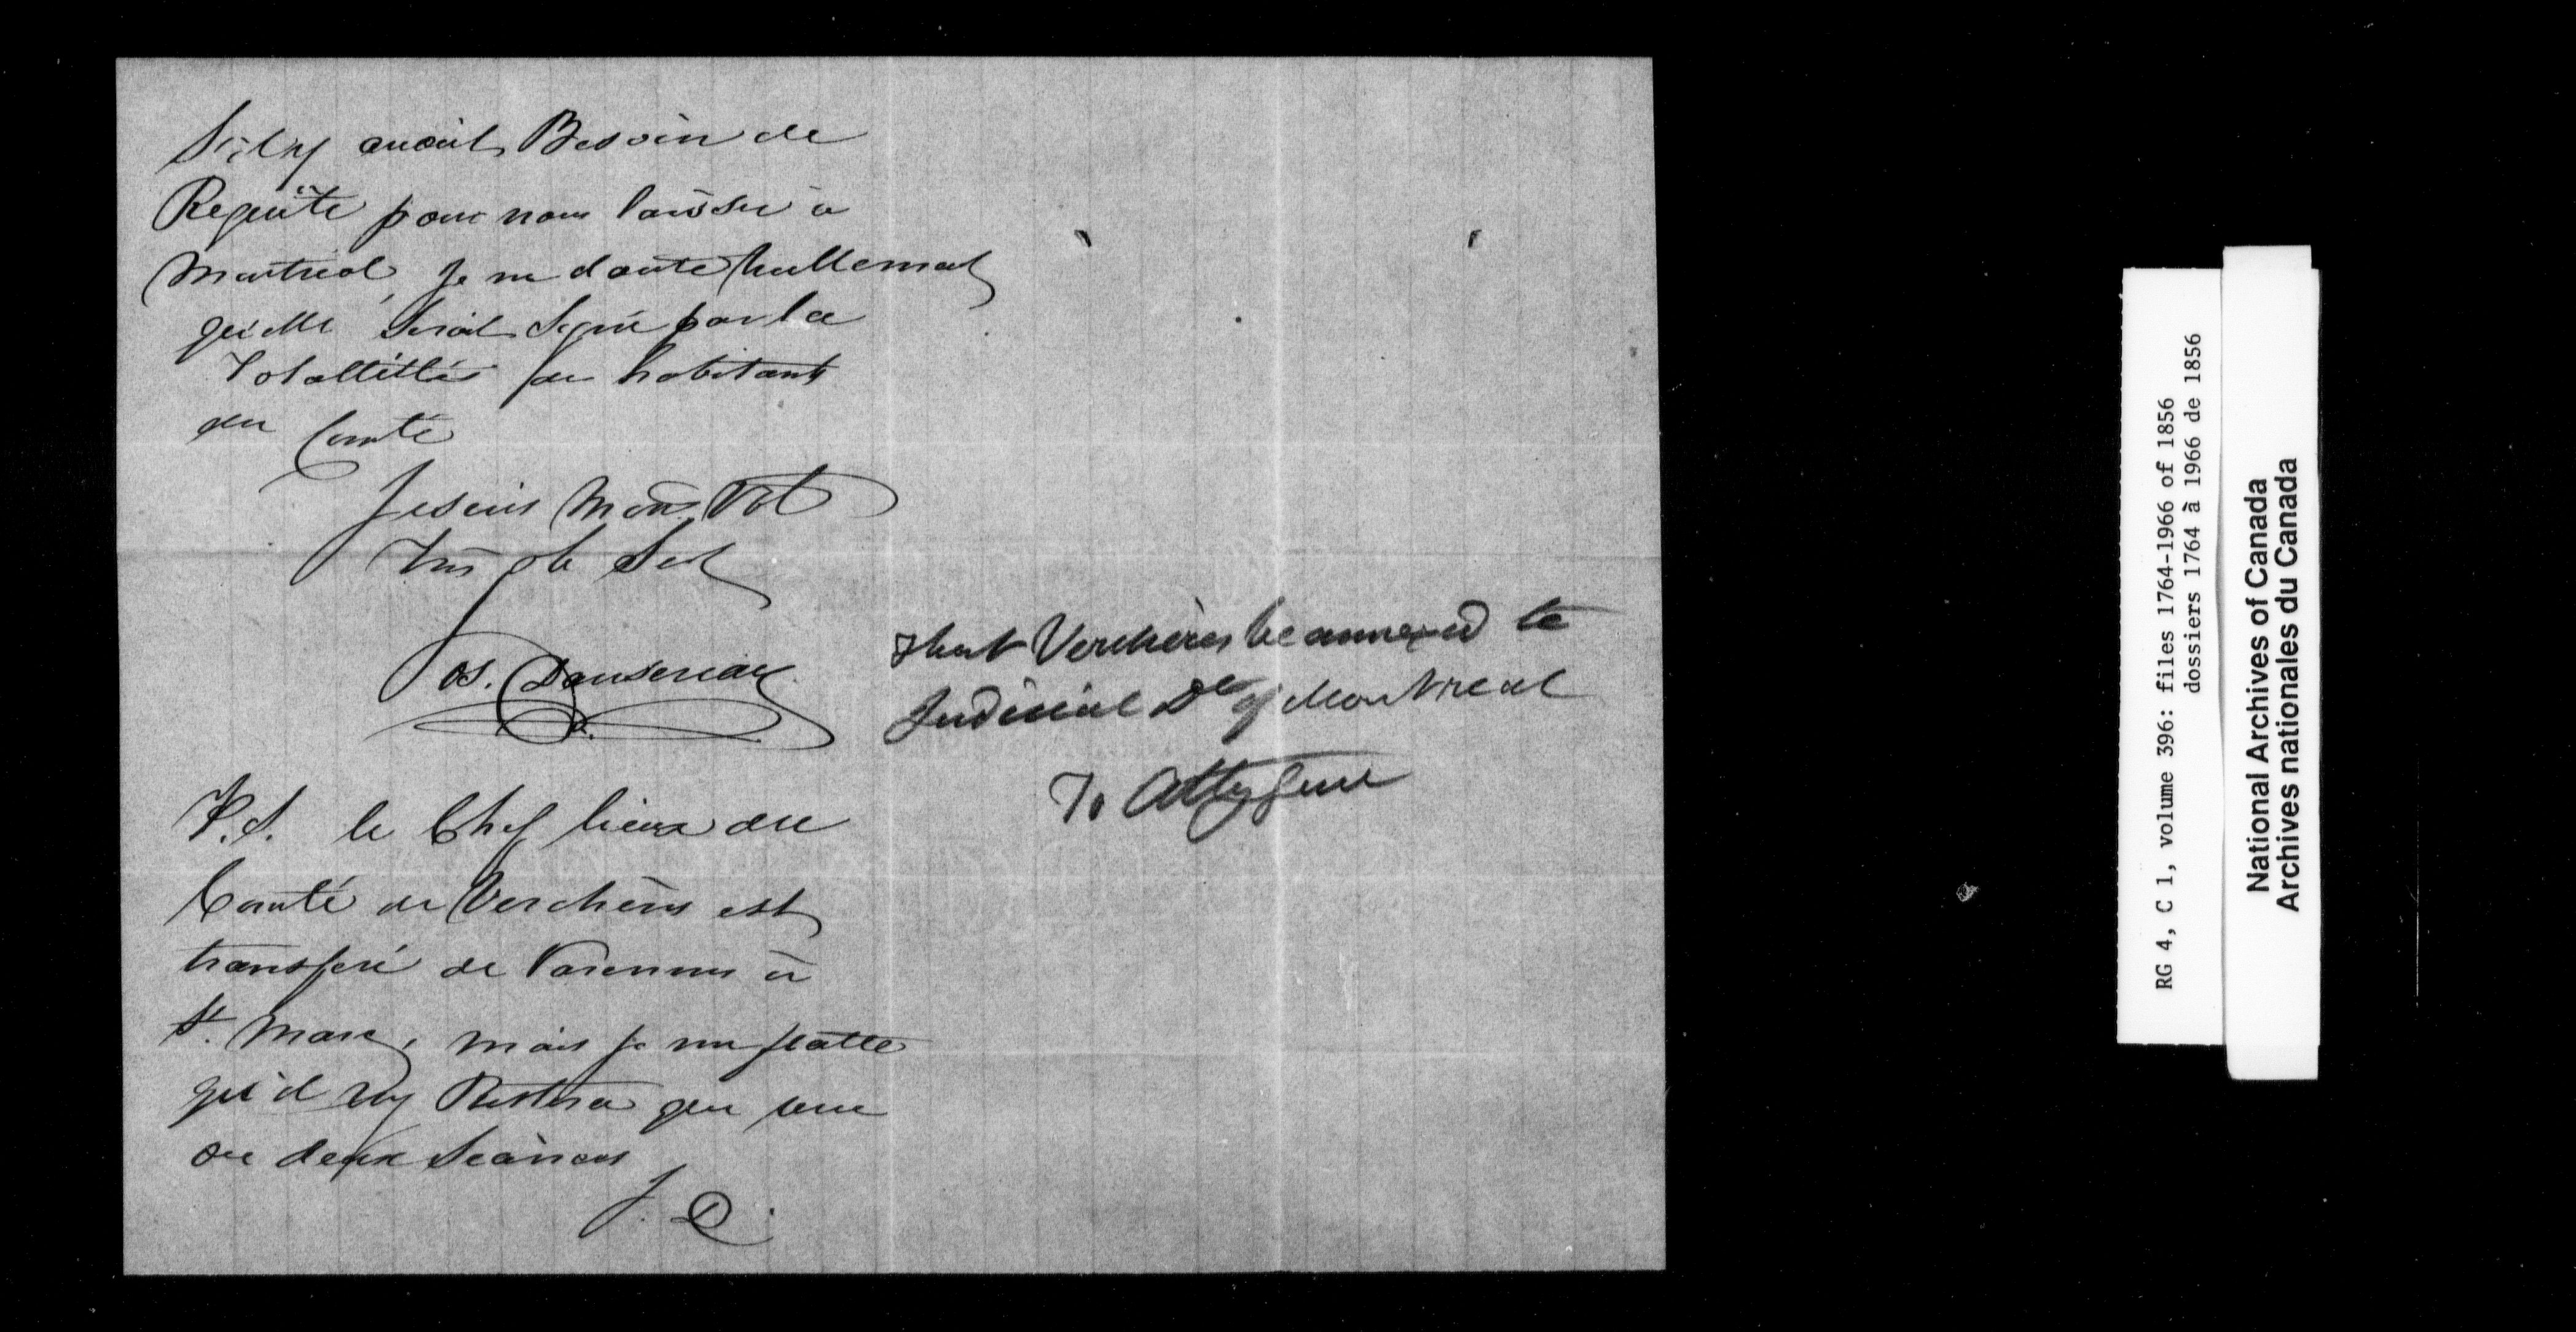 S'il y avait Besoin de
Requête pour nous laisser à
Montreal, Je ne doute nullement
qu'elle serait signé par la
Totallitées des habitants
du Comté
Je suis Mons Vot
Ob Set
Jos. Dansereau
P.S. le Chef lieux du
Comté de Verchères est
transferé de Varennes à
St. Marc, mais je me flatte
qu'il n'y Restera que une
ou deux Séances
J. D.
That Verchères be annexed to
Judicial Dt of Montreal
To Atty Genl
RG 4, C 1, volume 396: files 1764-1966 of 1856
dossiers 1764 à 1966 de 1856
National Archives of Canada
Archives nationales du Canada